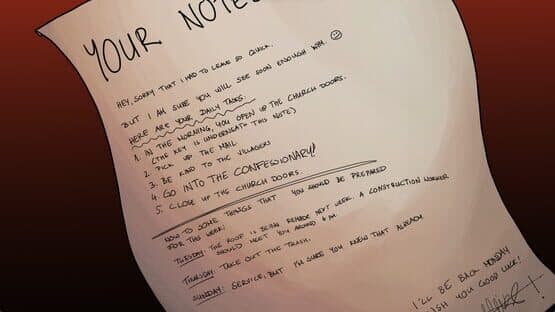 YOUR NOTE
HEY, SORRY THAT I HAD TO LEAVE SO QUICK.
BUT I AM SURE YOU WILL SEE SOON ENOUGH WHY. ☺
HERE ARE YOUR DAILY TASKS.
1. IN THE MORNING, YOU OPEN UP THE CHURCH DOORS.
(THE KEY IS UNDERNEATH THIS NOTE)
2. PICK UP THE MAIL
3. BE KIND TO THE VILLAGERS
4. GO INTO THE CONFESSIONARY!
5. CLOSE UP THE CHURCH DOORS.
NOW TO SOME THINGS THAT YOU SHOULD BE PREPARED
FOR THIS WEEK!
TUESDAY: THE ROOF IS BEING REMADE NEXT WEEK. A CONSTRUCTION WORKER
SHOULD MEET YOU AROUND 6 PM.
THURSDAY: TAKE OUT THE TRASH.
SUNDAY: SERVICE, BUT I'M SURE YOU KNEW THAT ALREADY.
I'LL BE BACK MONDAY
SH YOU GOOD LUCK!